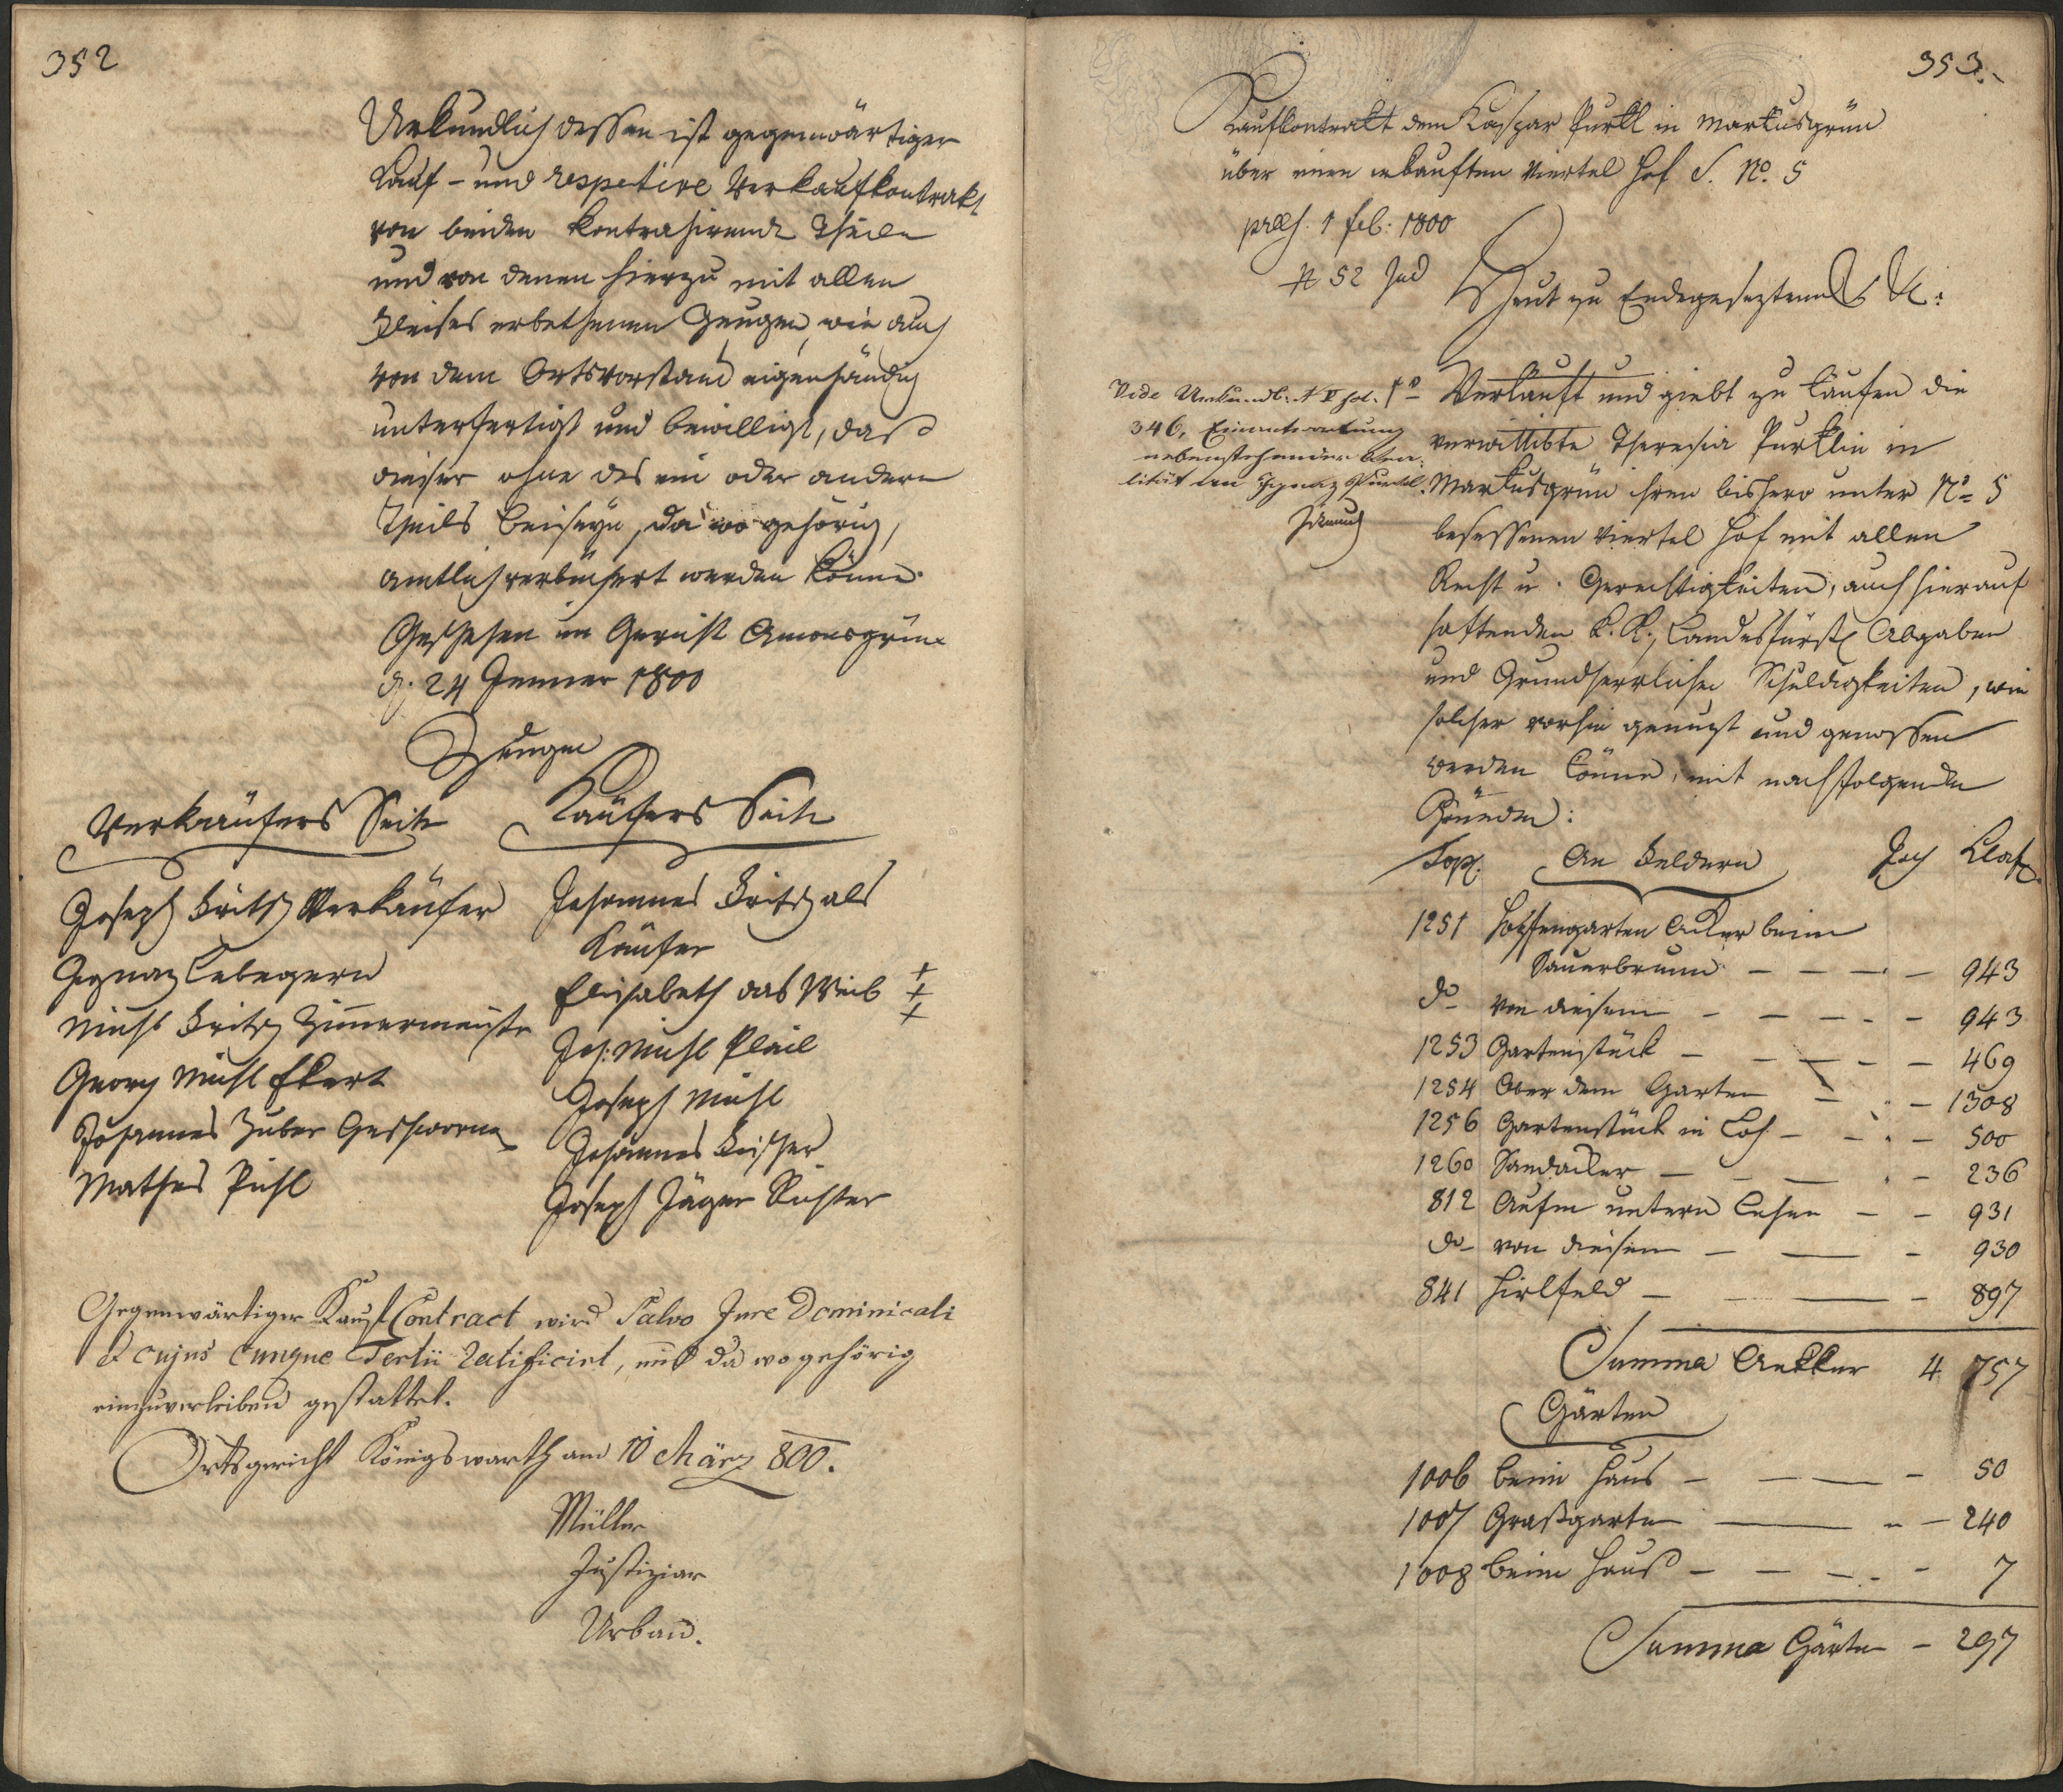 352
Urkundlich dessen ist gegenwärtiger
Kauf- und respective Verkaufkontrakt
von beiden kontrahirende Theile
und von denen hierzu mit allen
Fleises erbethenen Zeugen, wie auch
von dem Ortsvorstand eigenhändig
unterfertigt und bewilligt, daß
dieser ohne des ein oder andern
Theils beiseyn, da wo gehörig,
amtlich verbüchert werden könne.
Geschehen im Gericht Amonsgrün
d. 24 Jenner 1800
Zeugen
Verkäufers Seite
Joseph Fritsch Verkäufer
Ignaz Lebegern
Michl Fritsch Zimermeister
Georg Michl Ekert
Johannes Zuber Geschworne
Mathes Pichl
Käufers Seite
Johannes Fritsch als
Käufer
Elisabeth das Weib +++
Joh: Michl Plail
Joseph Michl
Johannes Fischer
Joseph Jäger Richter
Gegenwärtiger Kauf Contract wird Salvo Jure Dominicali
et cujus cunque Tertii ratificirt, und da wo gehörig
einzuverleiben gestattet.
Ortsgericht Königswarth am 10 März 800.
Müller
Justiziar
Urban.
353.
Kaufkontrakt dem Kaspar Purkl in Markusgrün
über einen erkauften Viertel Hof S. No. 5
praes. 1 feb: 1800
N 52 Jud
Heut zu Endegesezten
Vide Urkundb: N V fol.
346, Einantwortung
nebenstehender Rea-
lität an Ignaz Purkl.
1o Verkauft und giebt zu kaufen die
verwittibte Theresia Purklin in
Markusgrün ihren bishero unter No 5
besessenen Viertel Hof mit allen
Recht u. Gerechtigkeiten, auch hierauf
haftenden K. K. Landesfürstl Abgaben
und Grundherrlichen Schuldigkeiten, wie
solcher vorhin genuzt und genossen
werden könne, mit nachfolgenden
Gründen:
Top. An Feldern Joch Klaf.
1251 Hopfengarten Acker beim
Sauerbrunn — — — — 943
do von diesem — — — — 943
1253 Gartenstück — — — — 469
1254 Ober dem Garten — — 1308
1256 Gartenstück in Loh — — — 500
1260 Sandacker — — — — 236
812 Aufm untern Lehen — — 931
do von diesem — — — 930
841 Hirlfeld — — — — 897
Summa Aekker 4 757
Gärten
1006 beim Haus — — — — 50
1007 Graßgarten — — — 240
1008 beim Hauß — — — — 7
Summa Gärten — 297